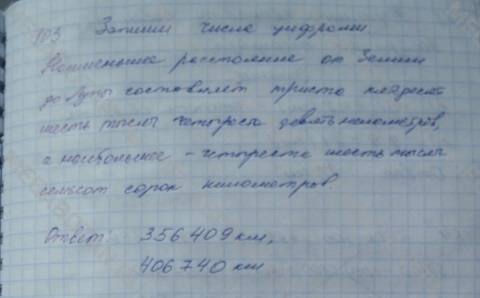 103 Запиши числа цифрами.
Наименьшее расстояние от Земли
до Луны составляет триста пятдесят
шесть тысяч четыреста девять километров,
а наибольшее - четыреста шесть тысяч
семьсот сорок километров.
Ответ 356 409 км,
406 740 км